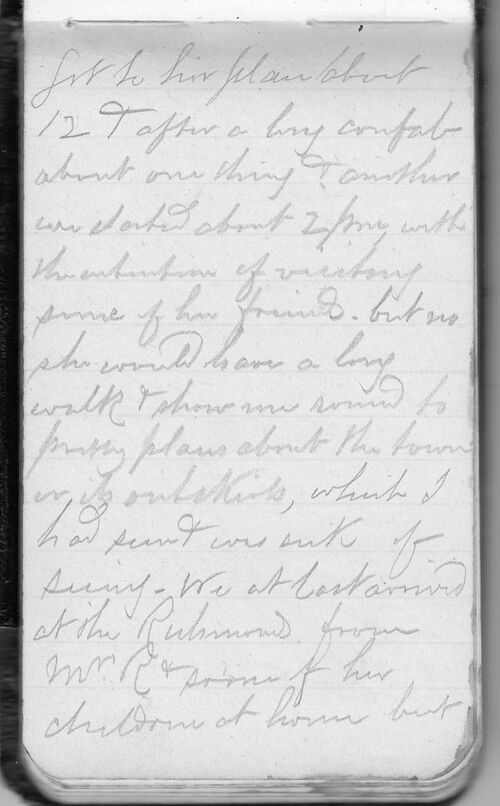 Got to her place about
12 & after a long confab
about one thing & another
we started about 2 pm with
the intention of visiting
some of her friends - but no
she would have a long
walk & show me round to
pretty places about the town
or its outskirts, which I
had seen & was sick of
seeing - We at last arrived
at the Richmonds found
Mrs R & some of her
children at home but